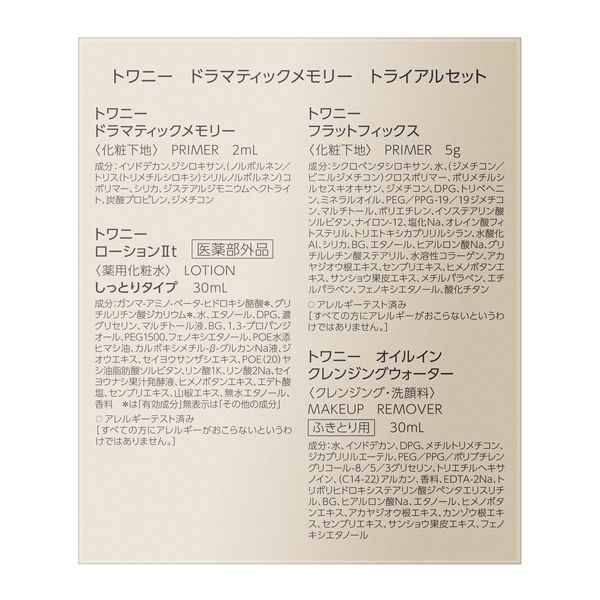 トワニー　ドラマティックメモリー　トライアルセット
トワニー
ドラマティックメモリー
〈化粧下地〉 PRIMER 2mL
成分：イソドデカン,ジシロキサン,(ノルボルネン／
トリス(トリメチルシロキシ)シリルノルボルネン)コ
ポリマー,シリカ,ジステアルジモニウムヘクトライ
ト,炭酸プロピレン,ジメチコン
トワニー
ローションⅡt 医薬部外品
〈薬用化粧水〉 LOTION
しっとりタイプ 30mL
成分：ガンマ-アミノ-ベータ-ヒドロキシ酪酸＊,グリ
チルリチン酸ジカリウム＊,水,エタノール,DPG,濃
グリセリン,マルチトール液,BG,1,3-プロパンジ
オール,PEG1500,フェノキシエタノール,POE水添
ヒマシ油,カルボキシメチル-β-グルカンNa液,ジ
オウエキス,セイヨウサンザシエキス,POE(20)ヤ
シ油脂肪酸ソルビタン,リン酸1K,リン酸2Na,セイ
ヨウナシ果汁発酵液,ヒメノボタンエキス,エデト酸
塩,センブリエキス,山椒エキス,無水エタノール,
香料 ＊は「有効成分」無表示は「その他の成分」
○アレルギーテスト済み
[すべての方にアレルギーがおこらないというわ
けではありません。]
トワニー
フラットフィックス
〈化粧下地〉 PRIMER 5g
成分：シクロペンタシロキサン,水,(ジメチコン／
ビニルジメチコン)クロスポリマー,ポリメチルシ
ルセスキオキサン,ジメチコン,DPG,トリペヘニ
ン,ミネラルオイル,PEG／PPG-19／19ジメチコ
ン,マルチトール,ポリエチレン,イソステアリン酸
ソルビタン,ナイロン-12,塩化Na,オレイン酸フィ
トステリル,トリエトキシカプリリルシラン,水酸化
Al,シリカ,BG,エタノール,ヒアルロン酸Na,グリ
チルレチン酸ステアリル,水溶性コラーゲン,アカ
ヤジオウ根エキス,センブリエキス,ヒメノボタンエ
キス,サンショウ果皮エキス,メチルパラベン,エチ
ルパラベン,フェノキシエタノール,酸化チタン
○アレルギーテスト済み
[すべての方にアレルギーがおこらないというわ
けではありません。]
トワニー　オイルイン
クレンジングウォーター
〈クレンジング・洗顔料〉
MAKEUP REMOVER
ふきとり用 30mL
成分：水,イソドデカン,DPG,メチルトリメチコン,
ジカプリリルエーテル,PEG／PPG／ポリブチレン
グリコール-8／5／3グリセリン,トリエチルヘキサ
ノイン,(C14-22)アルカン,香料,EDTA-2Na,ト
リポリヒドロキシステアリン酸ジペンタエリスリチ
ル,BG,ヒアルロン酸Na,エタノール,ヒメノボタ
ンエキス,アカヤジオウ根エキス,カンゾウ根エキ
ス,センブリエキス,サンショウ果皮エキス,フェノ
キシエタノール